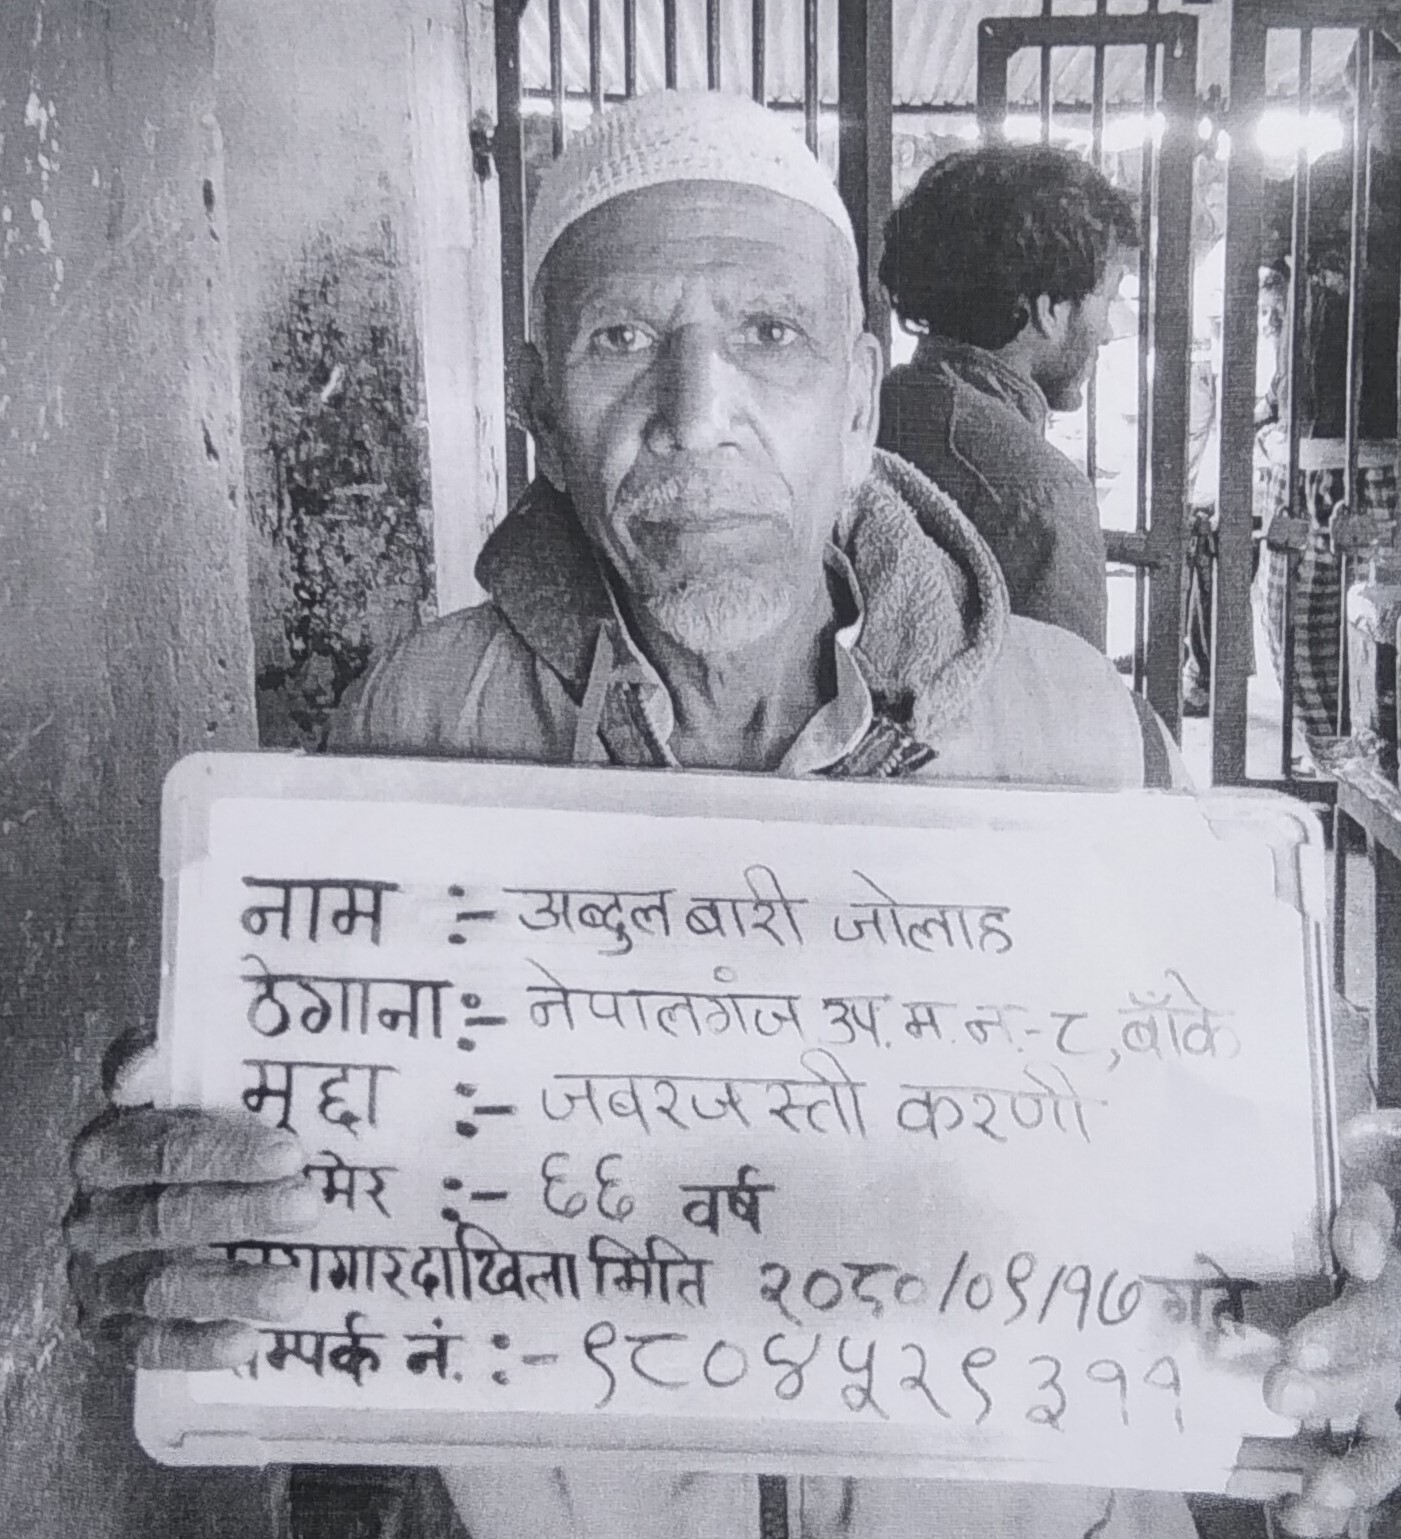 नाम :- अब्दुल बारी जोलाह
ठेगाना:- नेपालगंज उप.म.न.-८, बाँके
मुद्दा :- जबरजस्ती करणी
मेर :- ६६ वर्ष
गारदाखिला मिति २०८०/०९/१७ गते
म्पर्क नं. :- ९८०४५२९३११